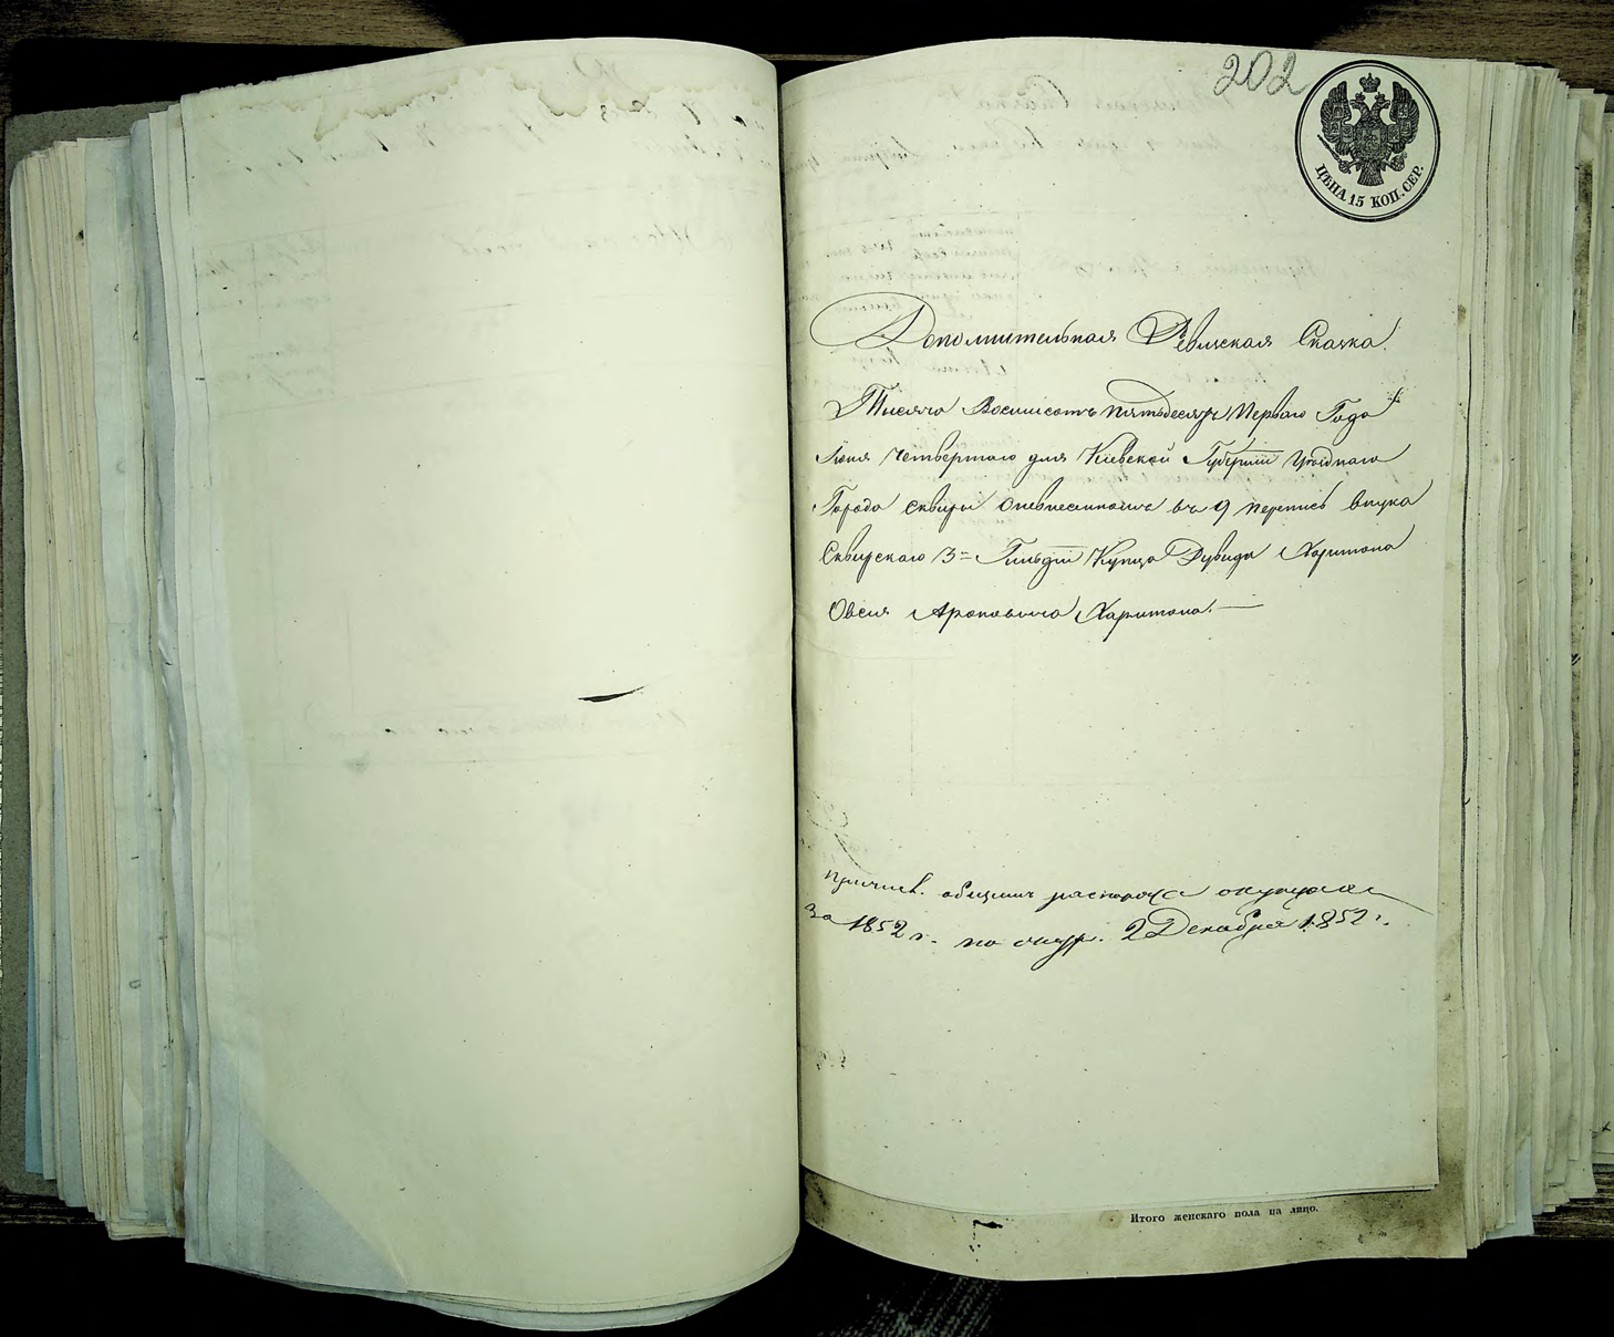 202
ЦѢНА 15 КОП. СЕР.
Дополнительная Ревизская Сказка.
Тысяча Восемьсотъ пятьдесятъ Перваго Года
Іюня Четвертаго дня Кіевской Губерніи Уѣзднаго
Города Сквиры о невнесенномъ въ 9 перепись внука
Сквирскаго 3й Гильдіи Купца Дувида Харитона
Овсея Ароновича Харитона.
причисл. общимъ
за 1852 г. по 2 Декабря 1852 г.
Итого женскаго пола на лицо.